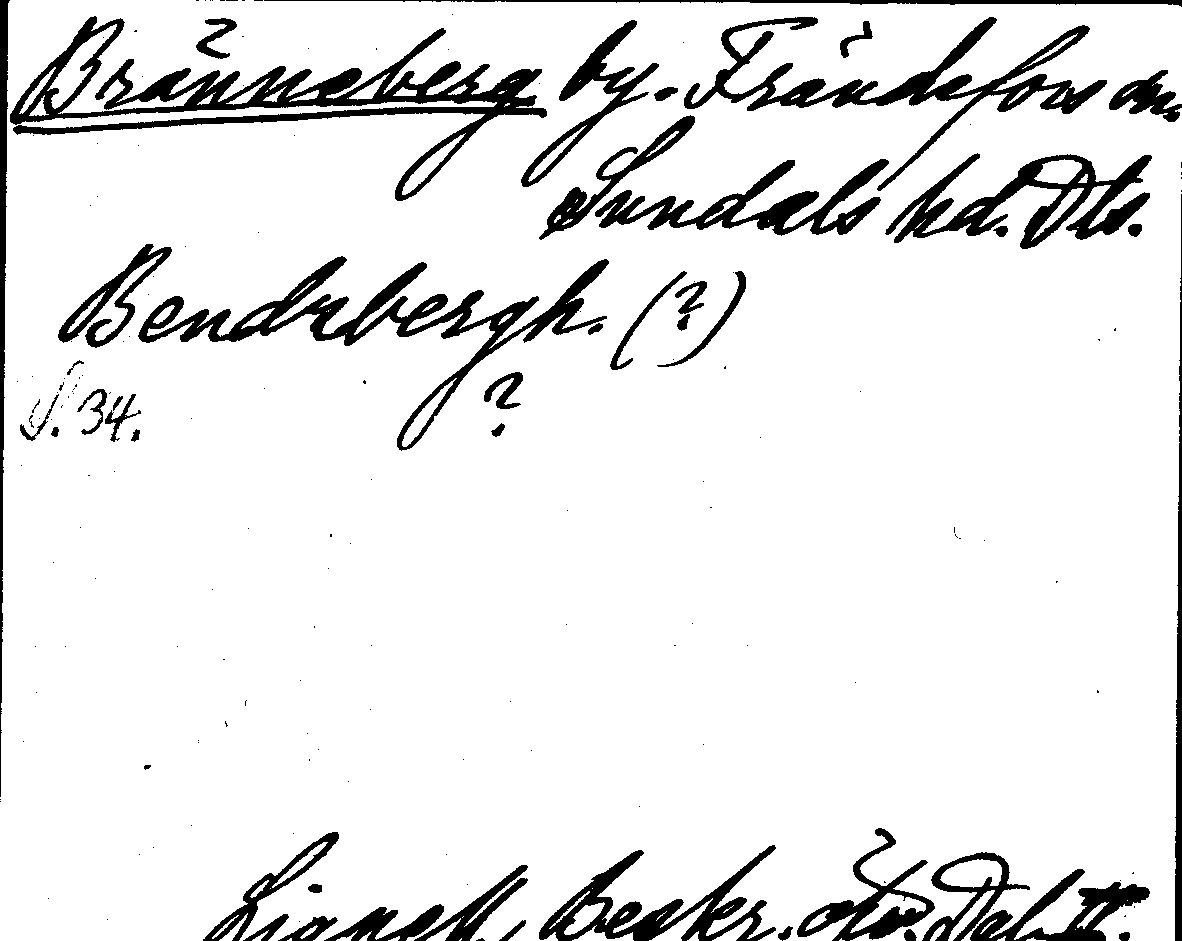 Bränneberg by. Frändefors sn.
Sundals hd. Dls.
Bendebergh. (?)
S. 34. ?
Lignell, Beskr. öfv. Dal II.